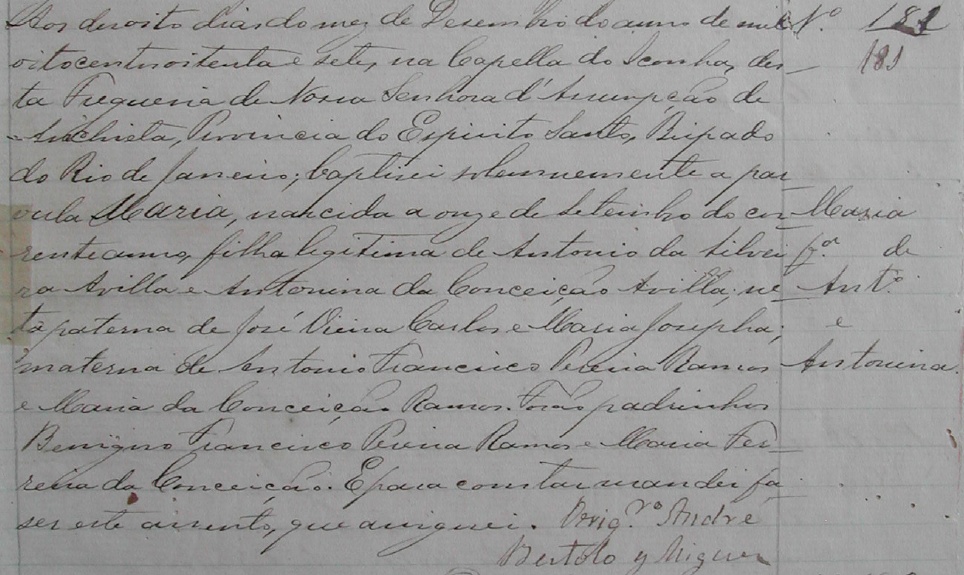 Aos desoito dias do mez de Desembro do anno de mil
oitocentos oitenta e sete, na Capella do Iconha, des-
ta Fregueria de Nossa Senhora d'Assumpção de
Anchieta, Provincia do Espirito Santo, Bispado
do Rio de Janeiro; baptisei solemnemente a par-
vula Maria, nascida a onze de Setembro do cor-
rente anno, filha legitima de Antonio da Silvei
ra Avilla e Antonina da Conceição Avilla; ne-
ta paterna de José Vieira Carlos e Maria Josepha;
materna de Antonio Francisco Pereira Ramos
e Maria da Conceição Ramos. Forão padrinhos
Benigno Francisco Pereira Ramos e Maria Fer-
reira da Conceição. E para constar mandei fa
ser este assento, que assignei. Vrig.ro André
Bertolo y
Nº 181
181
Maria
f.a de
Ant.o
e
Antonina.